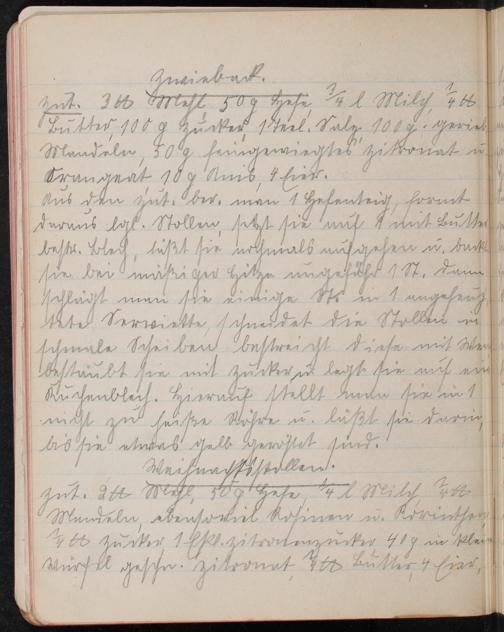 Zwieback.
Zut. 3 ℔ Mehl 50 g Hefe, 3/4 l Milch, 1/4 ℔
Butter, 100 g Zucker, 1 Teel. Salz, 100 g. gerieb.
Mandeln, 50 g feingewiegtes Zitronat u
Orangeat, 10 g Anis, 4 Eier.
Aus den Zut. ber. man 1 Hefenteig, formt
daraus lgl. Stollen, setzt sie auf 1 mit Butter
bestr. Blech, läßt sie nochmals aufgehen u. backt
sie bei mäßiger Hitze ungefähr 1 St. dann
schlägt man sie einige Std. in 1 angefeuch
tete Serviette, schneidet die Stollen in
schmale Scheiben bestreicht diese mit
bestäubt sie mit Zucker u legt sie auf ein
Kuchenblech. Hierauf stellt man sie in 1
nicht zu heiße Röhre u. läßt sie darin,
bis sie etwas gelb geröstet sind.
Weihnachtsstollen.
Zut. 2 ℔ Mehl, 50 g Hefe, l Milch ℔
Mandeln, ebensoviel Rosinen u. Korinthen,
℔ Zucker 1 Eßl. Zitronenzucker 40 g in klein
Würfel geschn. Zitronat, ℔ Butter, 4 Eier,